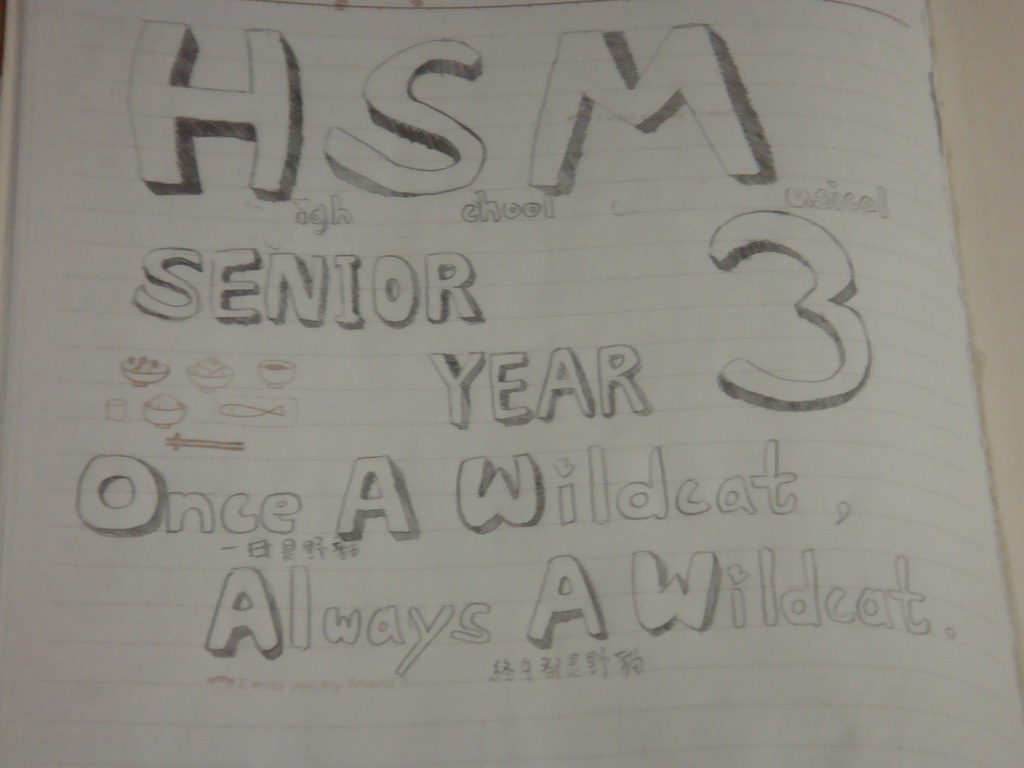 HSM
igh chool usical
SENIOR 3
YEAR
Once A Wildcat,
一日是野豹
Always A Wildcat.
终生都是野豹
I miss you my friend